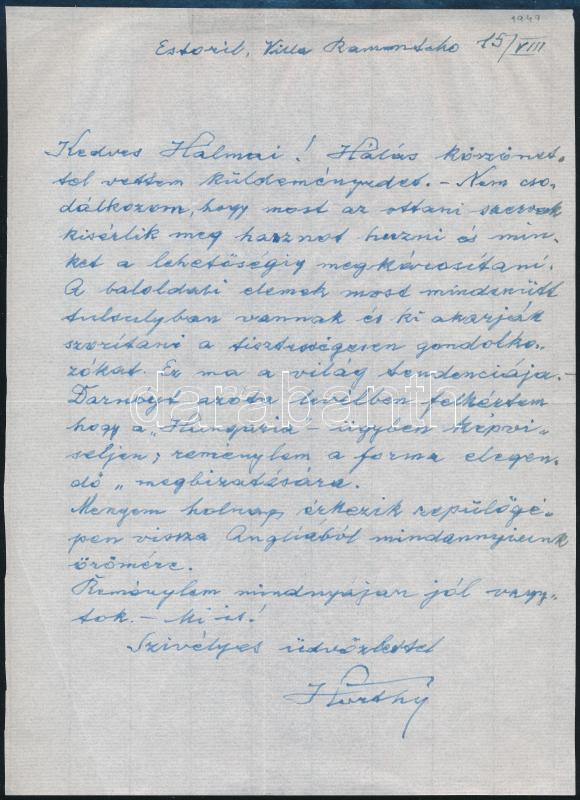 1949
Estoril, Villa Ramuntcho 15/VIII
Kedves Hálmai! Hálás köszönet-
tel vettem küldeményedet. – Nem cso-
dálkozom, hogy most az ottani szervek
kisérlik meg hasznot huzni és min-
ket a lehetőségig megkárositani.
A baloldali elemek most mindenütt
tulsulyban vannak és ki akarják
szoritani a tisztességesen gondolko-
zókat. Ez ma a világ tendenciája.
azota levélben felkértem
hogy a „Hungária – ügyben képvi-
seljen; reménylem a forma elegen-
dő „megbizatására.
Menyem holnap érkezik repülőgé-
pen vissza Angliából mindannyiunk
örömére.
Reménylem mindnyájan jól vagy-
tok. – Mi is!
Szivélyes üdvözlettel
Horthy
darabanth